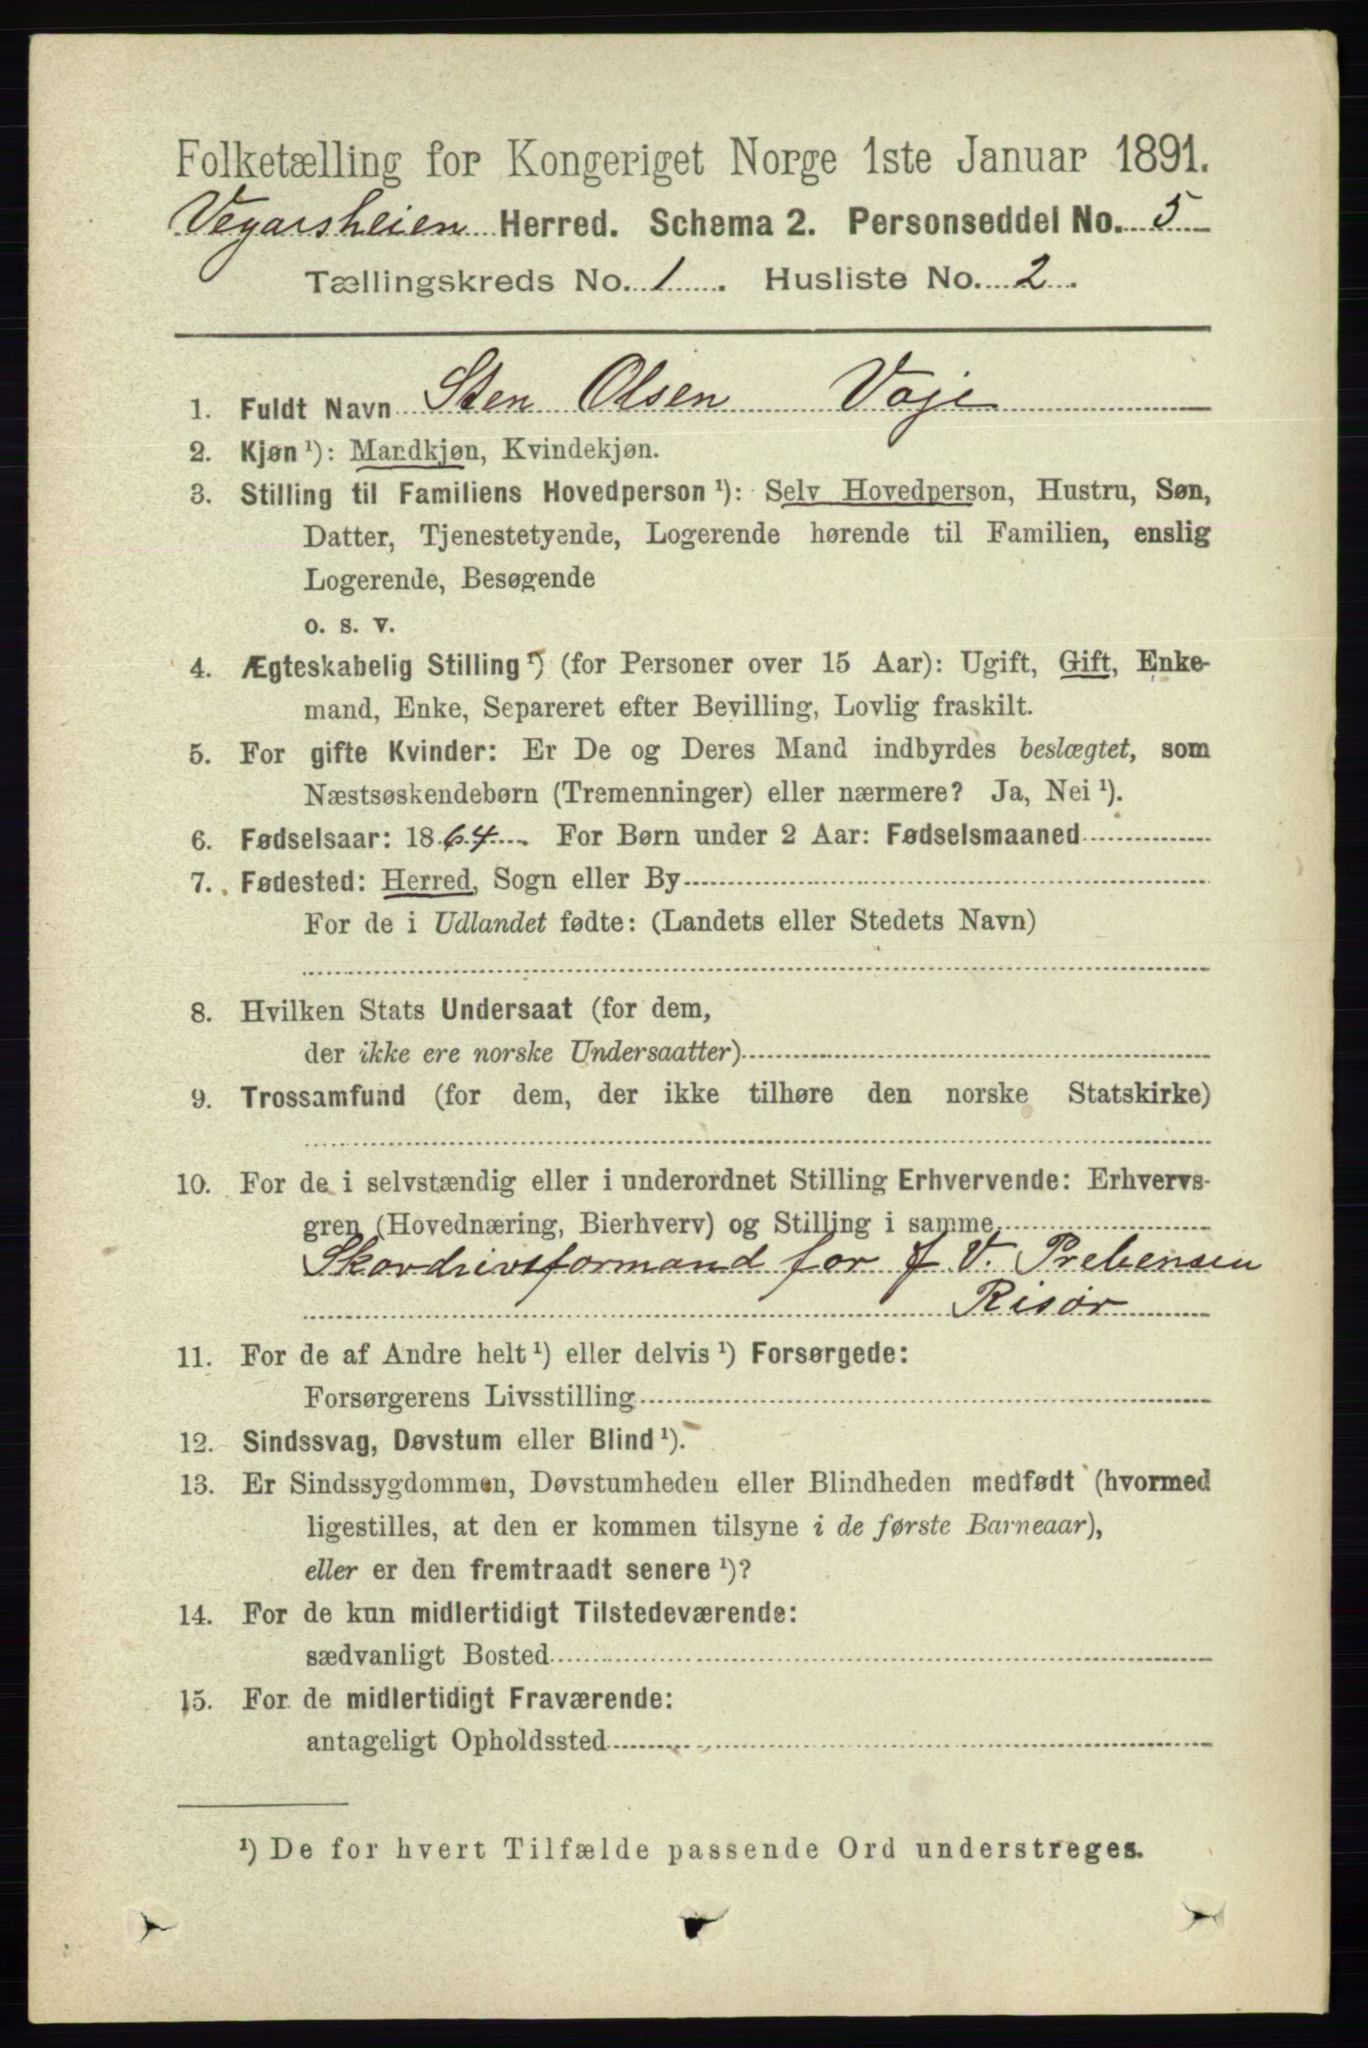 Folketælling for Kongeriget Norge 1ste Januar 1891.
Vegarsheien Herred. Schema 2. Personseddel No. 5
Tællingskreds No. 1. Husliste No. 2.
1. Fuldt Navn Sten Olsen Voje
2. Kjøn ¹): Mandkjøn, Kvindekjøn.
3. Stilling til Familiens Hovedperson ¹): Selv Hovedperson, Hustru, Søn,
Datter, Tjenestetyende, Logerende hørende til Familien, enslig
Logerende, Besøgende
o. s. v.
4. Ægteskabelig Stilling ¹) (for Personer over 15 Aar): Ugift, Gift, Enke-
mand, Enke, Separeret efter Bevilling, Lovlig fraskilt.
5. For gifte Kvinder: Er De og Deres Mand indbyrdes beslægtet, som
Næstsøskendebørn (Tremenninger) eller nærmere? Ja, Nei ¹).
6. Fødselsaar: 1864. For Børn under 2 Aar: Fødselsmaaned
7. Fødested: Herred, Sogn eller By
For de i Udlandet fødte: (Landets eller Stedets Navn)
8. Hvilken Stats Undersaat (for dem,
der ikke ere norske Undersaatter)
9. Trossamfund (for dem, der ikke tilhøre den norske Statskirke)
10. For de i selvstændig eller i underordnet Stilling Erhvervende: Erhvervs-
gren (Hovednæring, Bierhverv) og Stilling i samme
Skovdrivsformand for J V. Prebensen
Risør
11. For de af Andre helt ¹) eller delvis ¹) Forsørgede:
Forsørgerens Livsstilling
12. Sindssvag, Døvstum eller Blind ¹).
13. Er Sindssygdommen, Døvstumheden eller Blindheden medfødt (hvormed
ligestilles, at den er kommen tilsyne i de første Barneaar),
eller er den fremtraadt senere ¹)?
14. For de kun midlertidigt Tilstedeværende:
sædvanligt Bosted
15. For de midlertidigt Fraværende:
antageligt Opholdssted
¹) De for hvert Tilfælde passende Ord understreges.